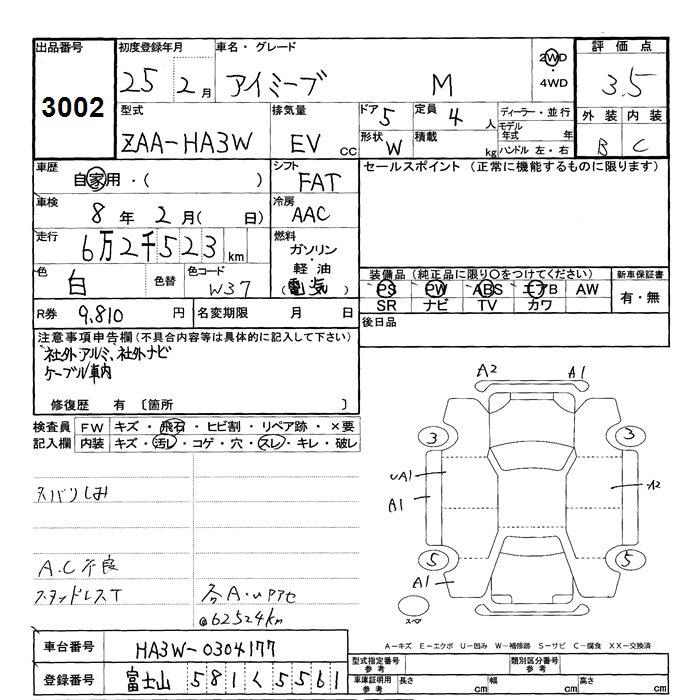 出品番号
3002
初度登録年月
25 2月
車名・グレード
アイミーブ M
2WD
・
4WD
評価点
3.5
型式
ZAA-HA3W
排気量
EV CC
ドア 5
定員 4 人
形状 W
積載 kg
ディーラー・並行
モデル年式 年
ハンドル 左・右
外装 内装
B C
車歴
自家用・( )
シフト
FAT
セールスポイント (正常に機能するものに限ります)
車検
8年 2月( 日)
冷房
AAC
走行
6万2千523km
燃料
ガソリン
・
軽油
(電気)
色
白
色替
色コード
W37
装備品 (純正品に限り○をつけてください)
PS PW ABS エアB AW
SR ナビ TV カワ
新車保証書
有・無
R券 9,810円
名変期限 月 日
後日品
注意事項申告欄(不具合内容等は具体的に記入して下さい)
社外アルミ、社外ナビ
ケーブル車内
修復歴 有 〔箇所 〕
検査員記入欄
FW キズ・飛石・ヒビ割・リペア跡・×要
内装 キズ・汚レ・コゲ・穴・スレ・キレ・破レ
A2 A1
3 3
UA1
A1
A2
5 5
A1
スペア
A.C不良
スタッドレスT
@62524km
A-キズ E-エクボ U-凹み W-補修跡 S-サビ C-腐食 XX-交換済
車台番号 HA3W-0304177
登録番号 富士山 581 く 5561
型式指定番号
参考
類別区分番号
参考
車庫証明用
参考
長さ cm
幅 cm
高さ cm